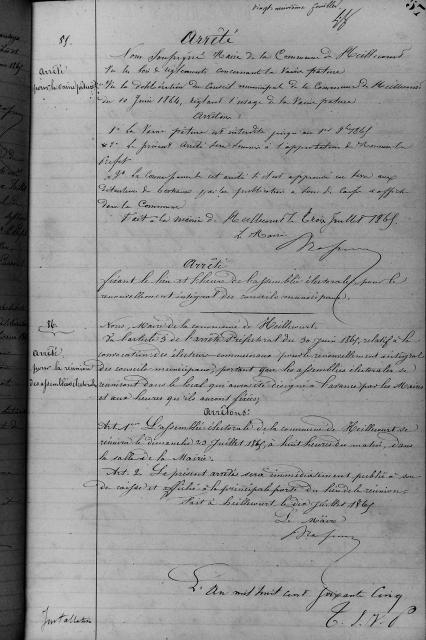 vingt neuvième feuillet
55.
Arrêté
Arrêté
pour la vaine pâture
Nous soussigné Maire de la Commune de Heillecourt
Vu les lois & règlements concernant la vaine pâture
Vu la délibération du Conseil municipal de la Commune de Heillecourt
du 10 Juin 1864, réglant l'usage de la vaine pâture
Arrêtons :
1° La vaine pâture est interdite jusqu'au 1er 1865
2° le présent arrêté sera soumis à l'approbation de Monsieur le
Préfet
3° est approuvé en sera aux
détenteurs de bestiaux par la publication à son de caisse & affiché
dans la Commune
Fait à la mairie de Heillecourt le Trois Juillet 1865
Le Maire
Arrêté
fixant le lieu et l'heure de l'assemblée électorale pour le
renouvellement intégral des conseils municipaux.
56.
Arrêté
pour la réunion
des assemblées électorales
Nous, Maire de la commune de Heillecourt.
Vu l'article 3 de l'arrêté Préfectoral du 30 Juin 1865, relatif à la
convocation des électeurs communaux pour le renouvellement intégral
des conseils municipaux, portant que les assemblées électorales se
réuniront dans le local qui aura été désigné à l'avance par les Maires
et aux heures qu'ils auront fixées;
Arrêtons:
Art. 1er L'assemblée électorale de la commune de Heillecourt se
réunira le dimanche 23 Juillet 1865, à huit heures du matin, dans
la salle de la Mairie.
Art. 2 Le présent arrêté sera immédiatement publié à son
de caisse et affiché à la principale porte du lieu de la réunion.
Fait à Heillecourt le dix Juillet 1865
Le Maire
Installation
L'An mil huit cent soixante cinq